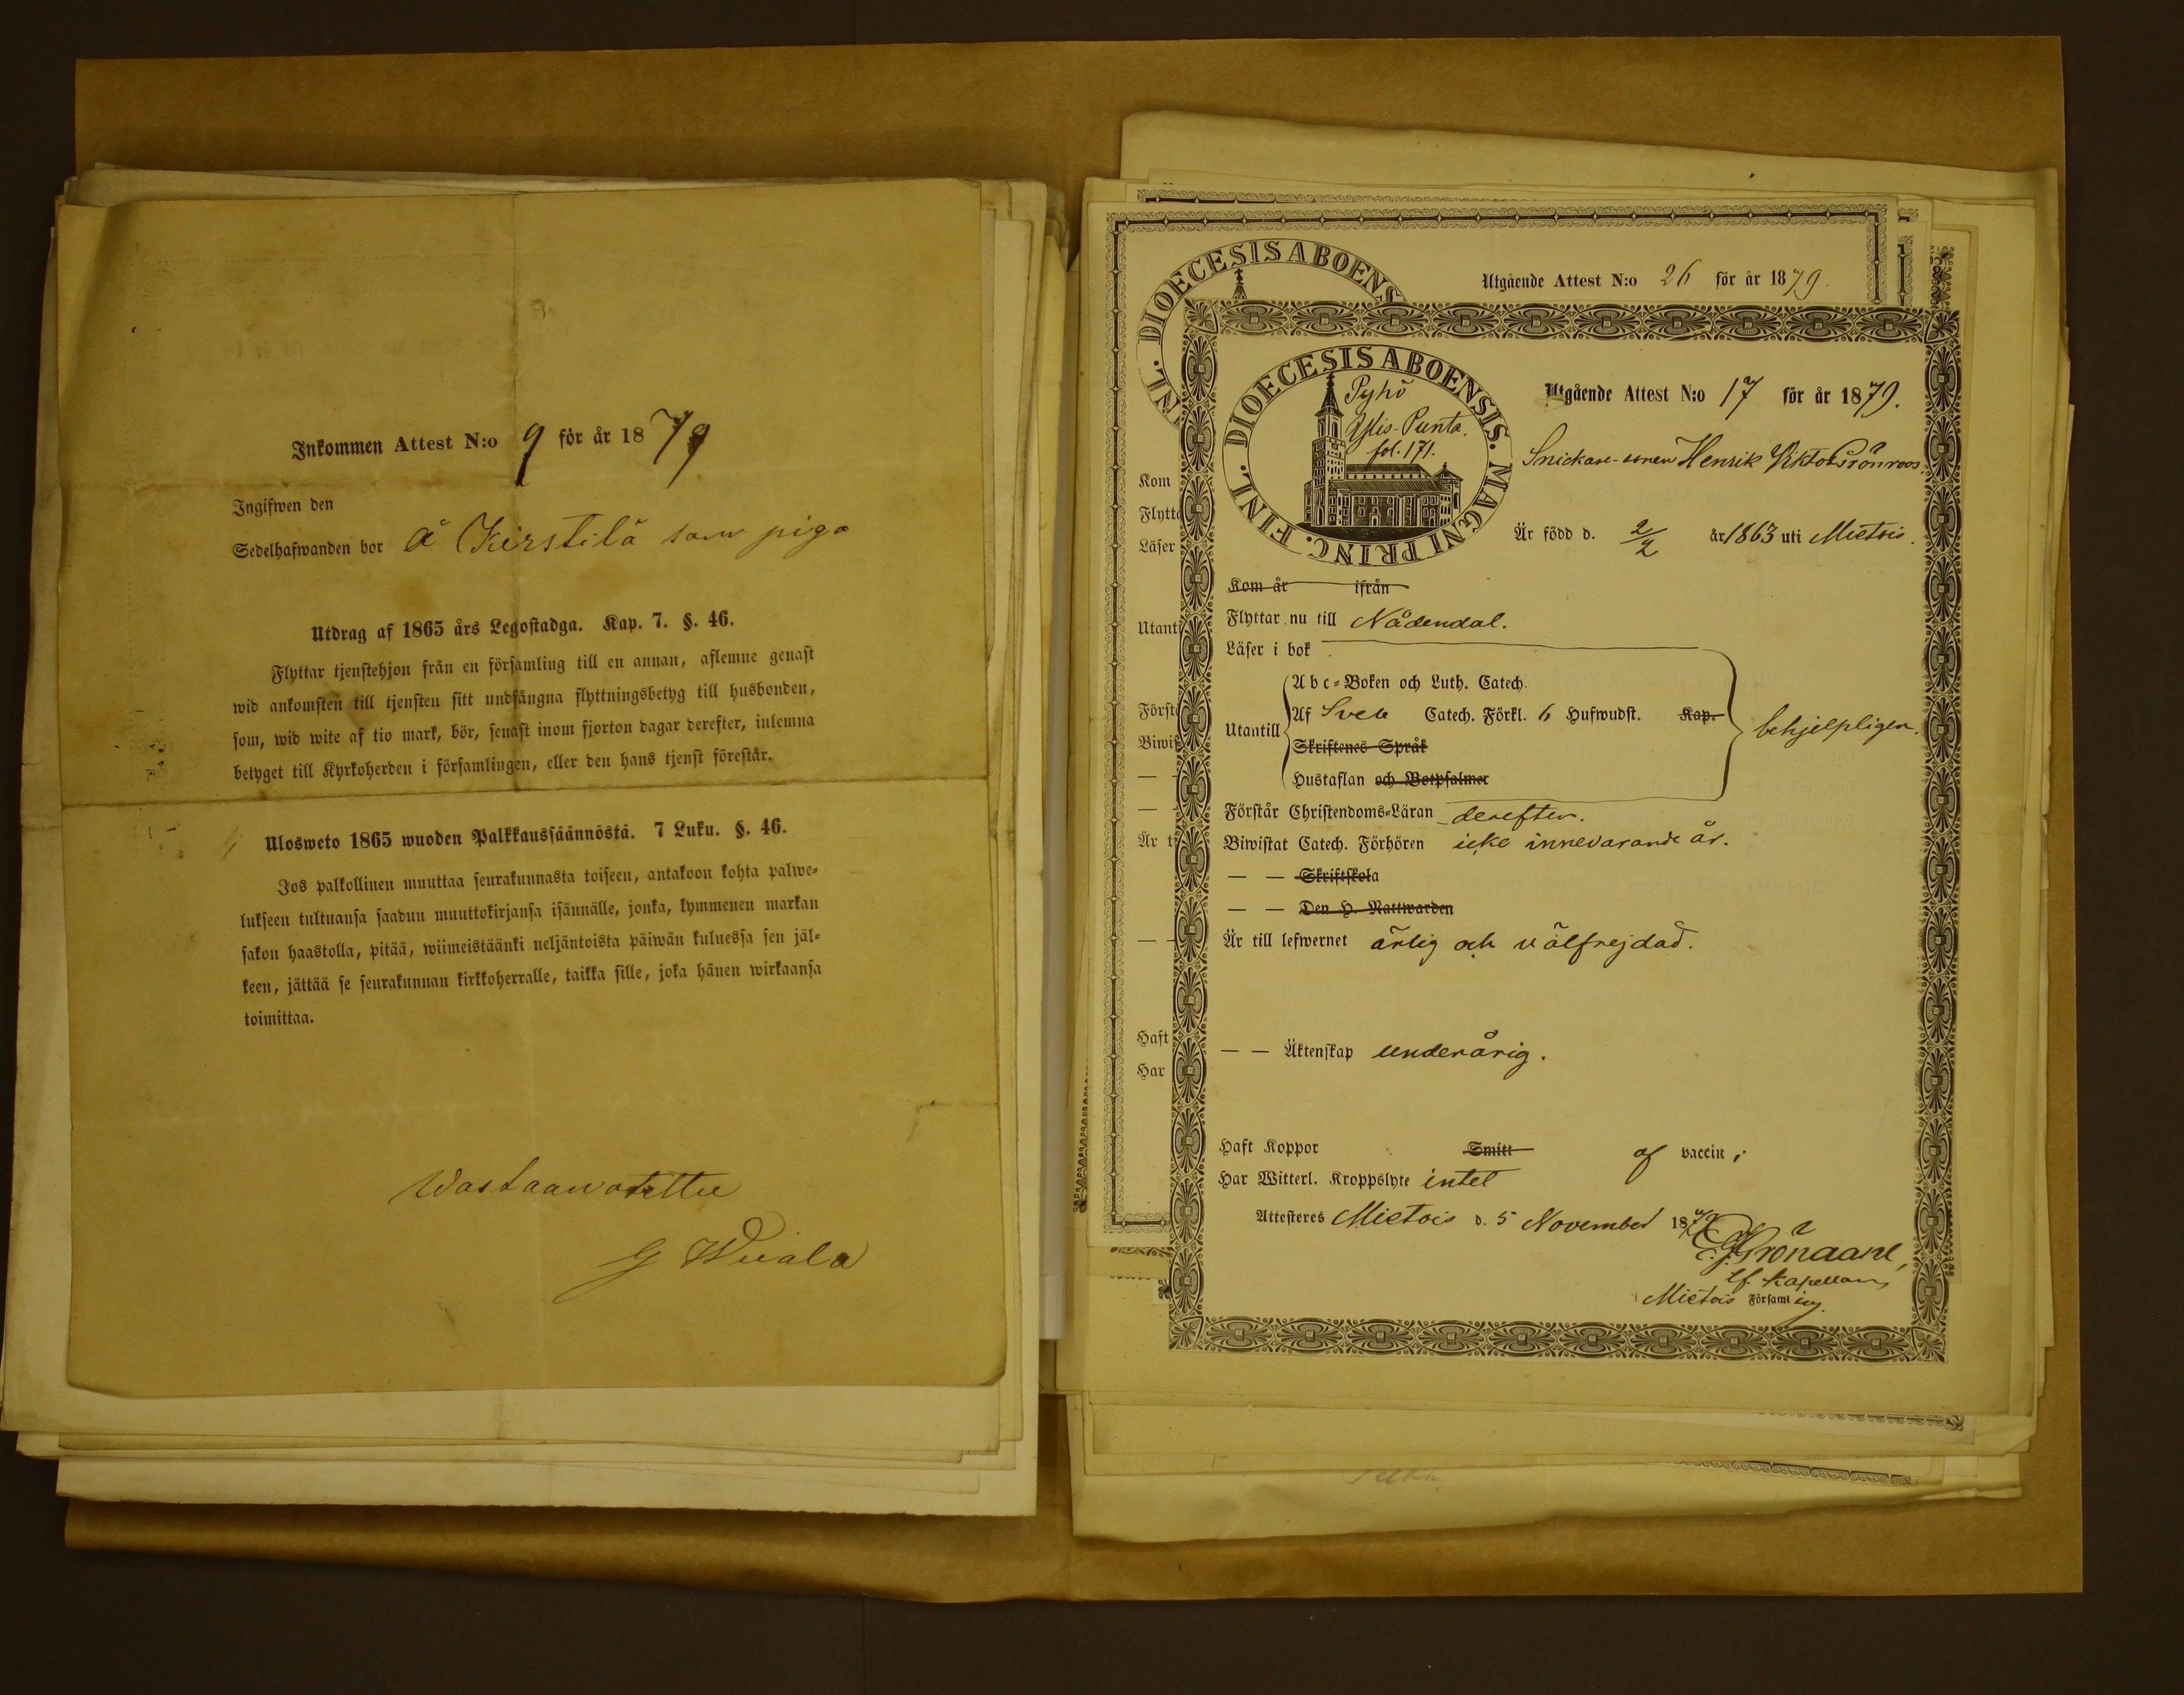 Inkommen Attest N:o 9 för år 1879
Ingifwen den
Sedelhafwanden bor å Kierstilä som piga
Utdrag af 1865 års Legostadga. Kap. 7. §. 46.
Flyttar tjenstehjon från en församling till en annan, aflemne genast
wid ankomsten till tjensten sitt undfångna flyttningsbetyg till husbonden,
som, wid wite af tio mark, bör, senast inom fjorton dagar derefter, inlemna
betyget till Kyrkoherden i församlingen, eller den hans tjenst förestår.
Ulosweto 1865 wuoden Palkkaussäännöstä. 7 Luku. §. 46.
Jos palkollinen muuttaa seurakunnasta toiseen, antakoon kohta palwe-
lukseen tultuansa saadun muuttokirjansa isännälle, jonka, kymmenen markan
sakon haastolla, pitää, wiimeistäänki neljäntoista päiwän kuluessa sen jäl-
keen, jättää se seurakunnan kirkkoherralle, taikka sille, joka hänen wirkaansa
toimittaa.
Wastaanotettu
G Wuala
NL. DIOECESIS ABOENS
Utgående Attest N:o 26 för år 1879.
Kom
Flytta
Läser
Utanti
Först
Biwis
Är ti
Haft
Har
DIOECESIS ABOENSIS. MAGNI PRINC. FINL.
Pyhö
Ylis-Punta.
fol. 171.
Utgående Attest N:o 17 för år 1879.
Snickare-sonen Henrik Viktor Grönroos.
Är född d. 2/2 år 1863 uti Mietois.
Kom år ifrån
Flyttar nu till Nådendal.
Läser i bok
Abc-Boken och Luth. Catech.
Utantill Af Sveb Catech. Förkl. 6 Hufwudst. Kap. behjelpligen.
Skriftenes Språk
Hustaflan och Botpsalmer
Förstår Christendoms-Läran derefter.
Biwistat Catech. Förhören icke innevarande år.
— — Skriftskola
— — Den H. Nattwarden
Är till lefwernet ärlig och välfrejdad.
— — Äktenskap underårig.
Haft Koppor Smitt af vaccin.
Har Witterl. Kroppslyte intet
Attesteres Mietois d. 5 November 1879
tf. Kapellan
i Mietois Församling.